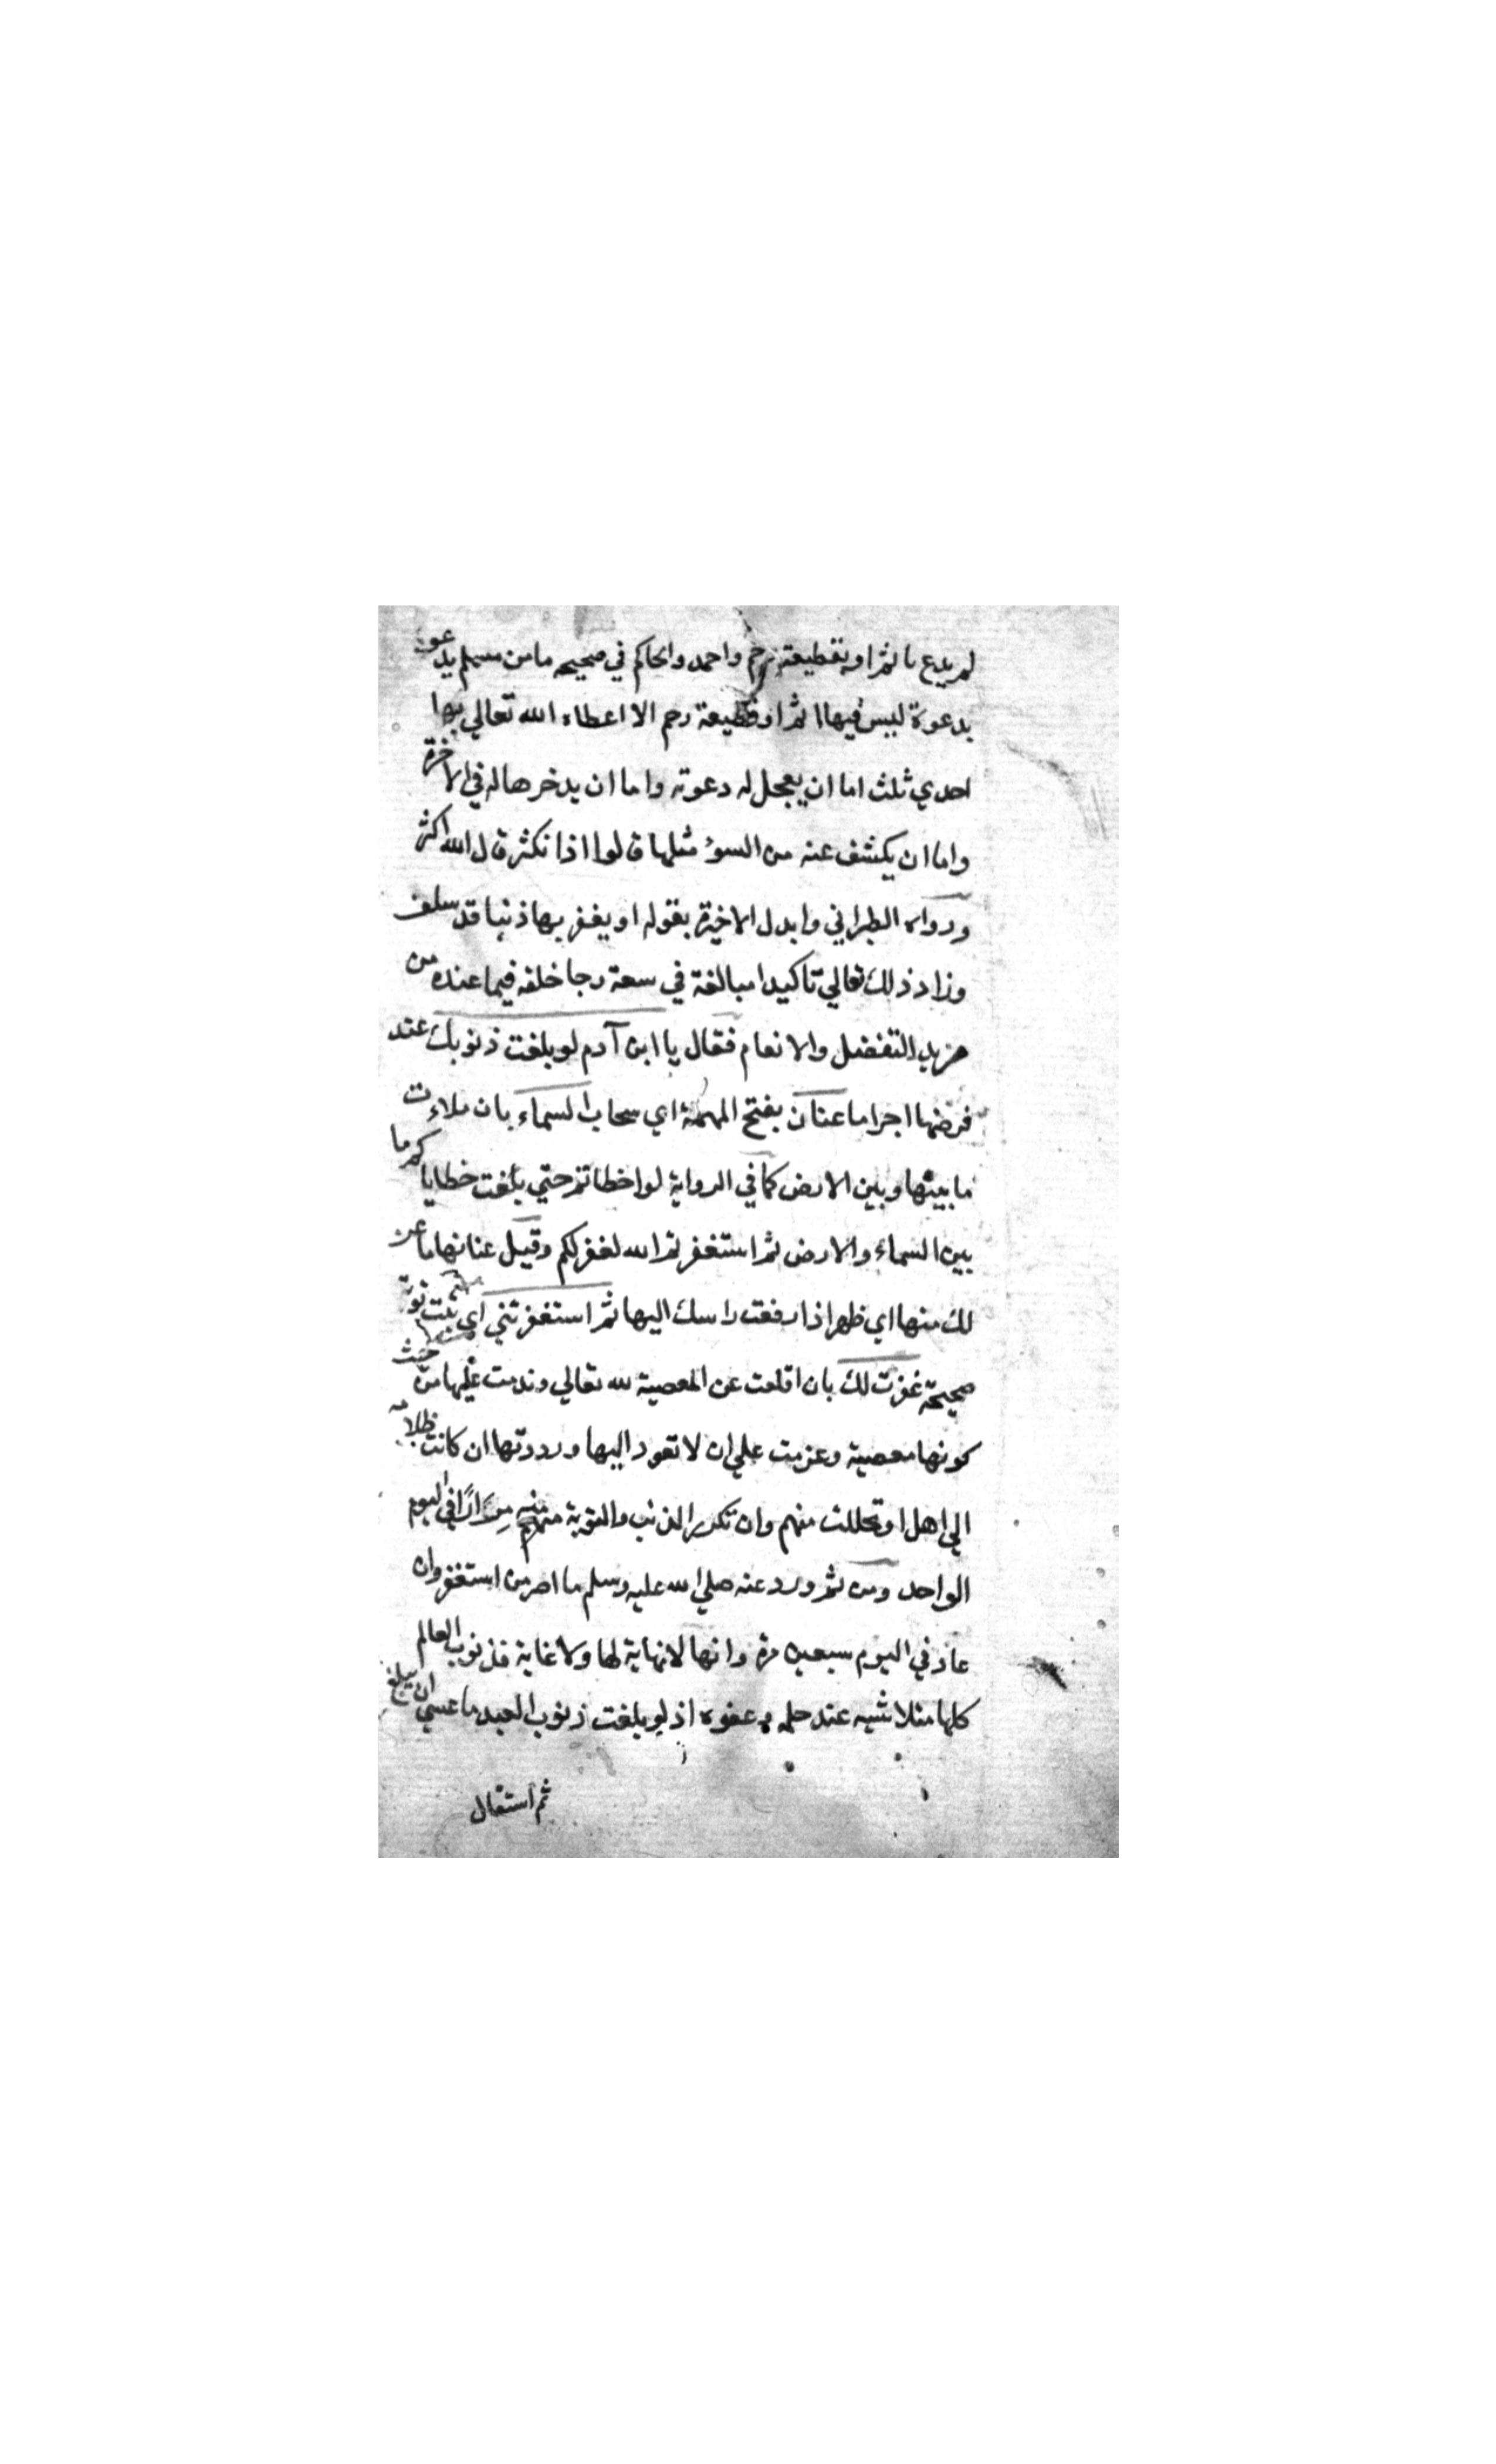 لم يدع باثم او بقطيعة رحم واحمد والحاكم في صحيحه ما من مسلم يدعو
بدعوة ليس فيها اثم او قطيعة رحم الا اعطاه الله تعالي بها
احدي ثلث اما ان يعجل له دعوته واما ان يدخرها له في الاخرة
واما ان يكشف عنه من السوء مثلها قالوا اذا نكثر قال الله اكثر
ورواه الطبراني وابدل الاخيرة بقوله او يغفر بها ذنبا قد سلف
وزاد ذلك تعالي تاكيدا مبالغة في سعة رجا خلقه فيما عنده من
مزيد التفضل والانعام فقال يا ابن آدم لو بلغت ذنوبك عند
فرضها اجراما عنان بفتح المهملة اي سحاب السماء بان ملاءت
ما بينها وبين الارض كما في الرواية لو اخطاتم حتي بلغت خطاياكم ما
بين السماء والارض ثم استغفرتم الله لغفر لكم وقيل عنانها ما عن
لك منها اي ظهر اذا رفعت راسك اليها ثم استغفرتني اي تبت توبة
صحيحة غفرت لك بان اقلعت عن المعصية لله تعالي وندمت عليها من حيث
كونها معصية وعزمت علي ان لا تعود اليها ورددتها ان كانت ظلامه
الي اهل او تحللت منهم وان تكرر الذنب والتوبة منه مِرَارًا في اليوم
الواحد ومن ثم ورد عنه صلي الله عليه وسلم ما اصر من استغفر وان
عاد في اليوم سبعين مرة وانها لا نهاية لها ولا غاية فذنوب العالم
كلها متلاشيه عند حلمه وعفوه اذ لو بلغت ذنوب العبد ما عسي ان يبلغ
ثم استقال